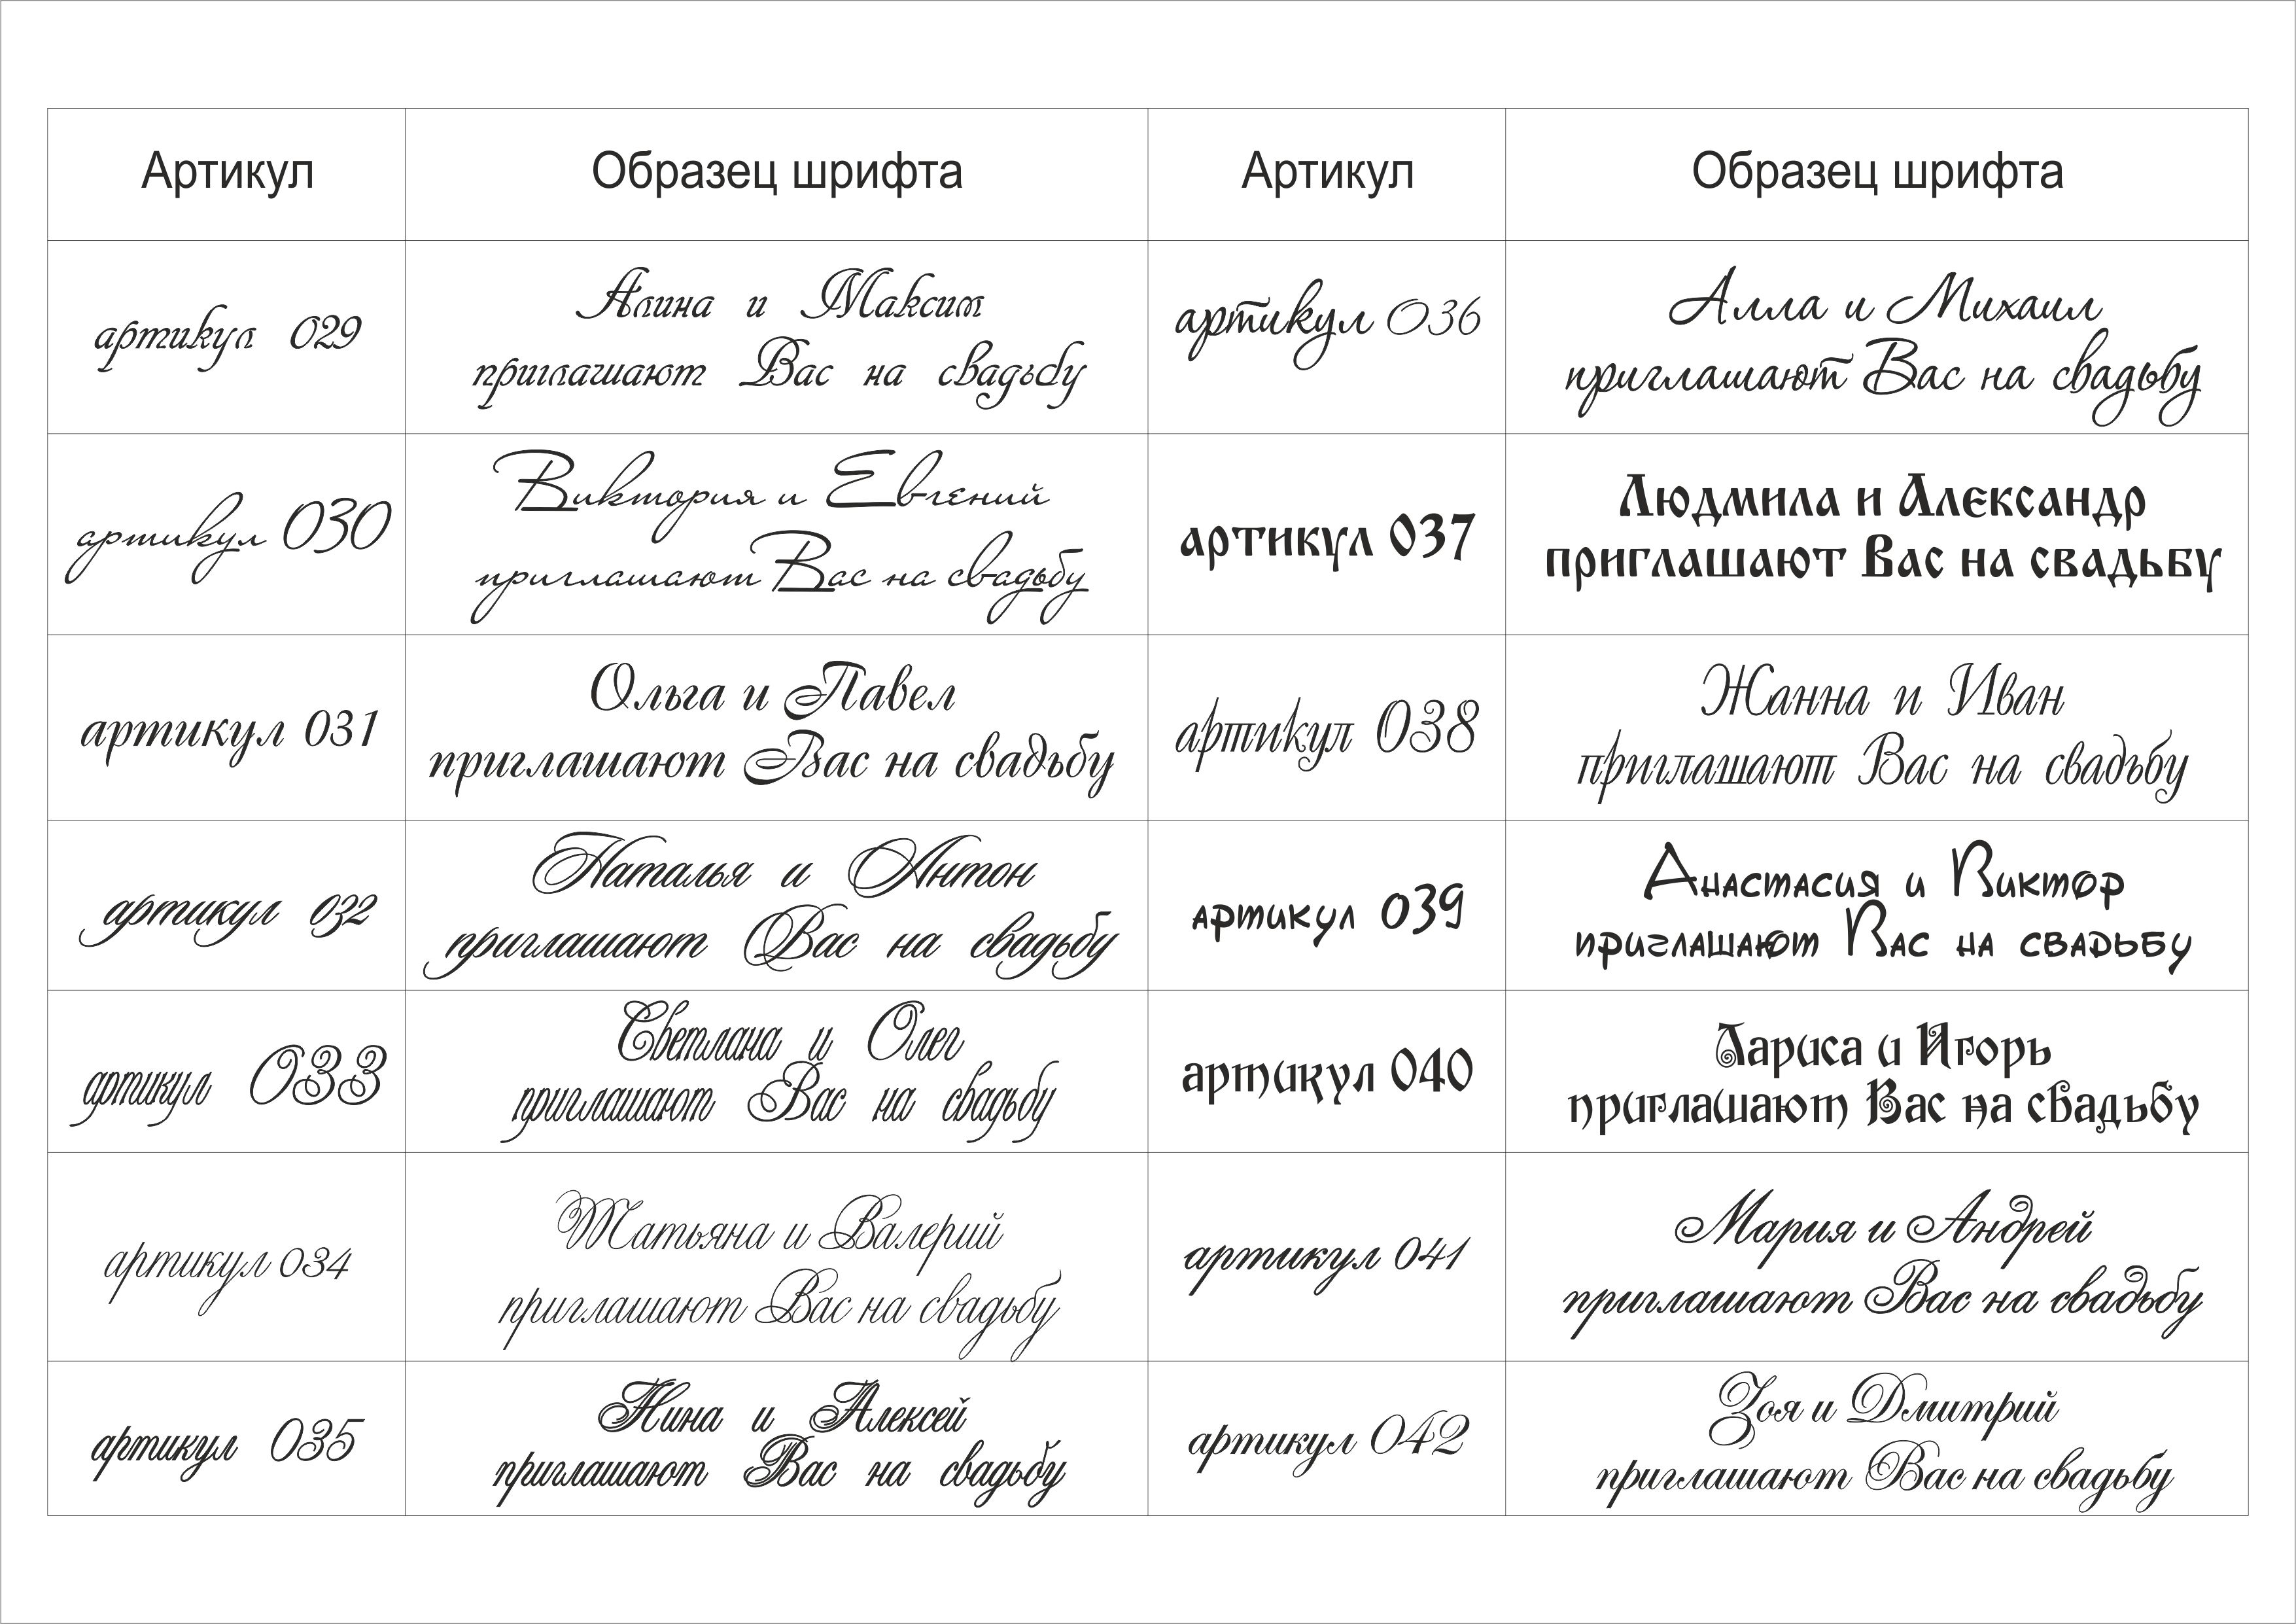 Артикул Образец шрифта Артикул Образец шрифта
артикул 029
Алина и Максим
приглашают Вас на свадьбу
артикул 036
Алла и Михаил
приглашают Вас на свадьбу
артикул 030
Виктория и Евгений
приглашают Вас на свадьбу
артикул 037
Людмила и Александр
приглашают Вас на свадьбу
артикул 031
Ольга и Павел
приглашают Вас на свадьбу
артикул 038
Жанна и Иван
приглашают Вас на свадьбу
артикул 032
Наталья и Антон
приглашают Вас на свадьбу
артикул 039
Анастасия и Виктор
приглашают Вас на свадьбу
артикул 033
Светлана и Олег
приглашают Вас на свадьбу
артикул 040
Лариса и Игорь
приглашают Вас на свадьбу
артикул 034
Татьяна и Валерий
приглашают Вас на свадьбу
артикул 041
Мария и Андрей
приглашают Вас на свадьбу
артикул 035
Нина и Алексей
приглашают Вас на свадьбу
артикул 042
Зоя и Дмитрий
приглашают Вас на свадьбу